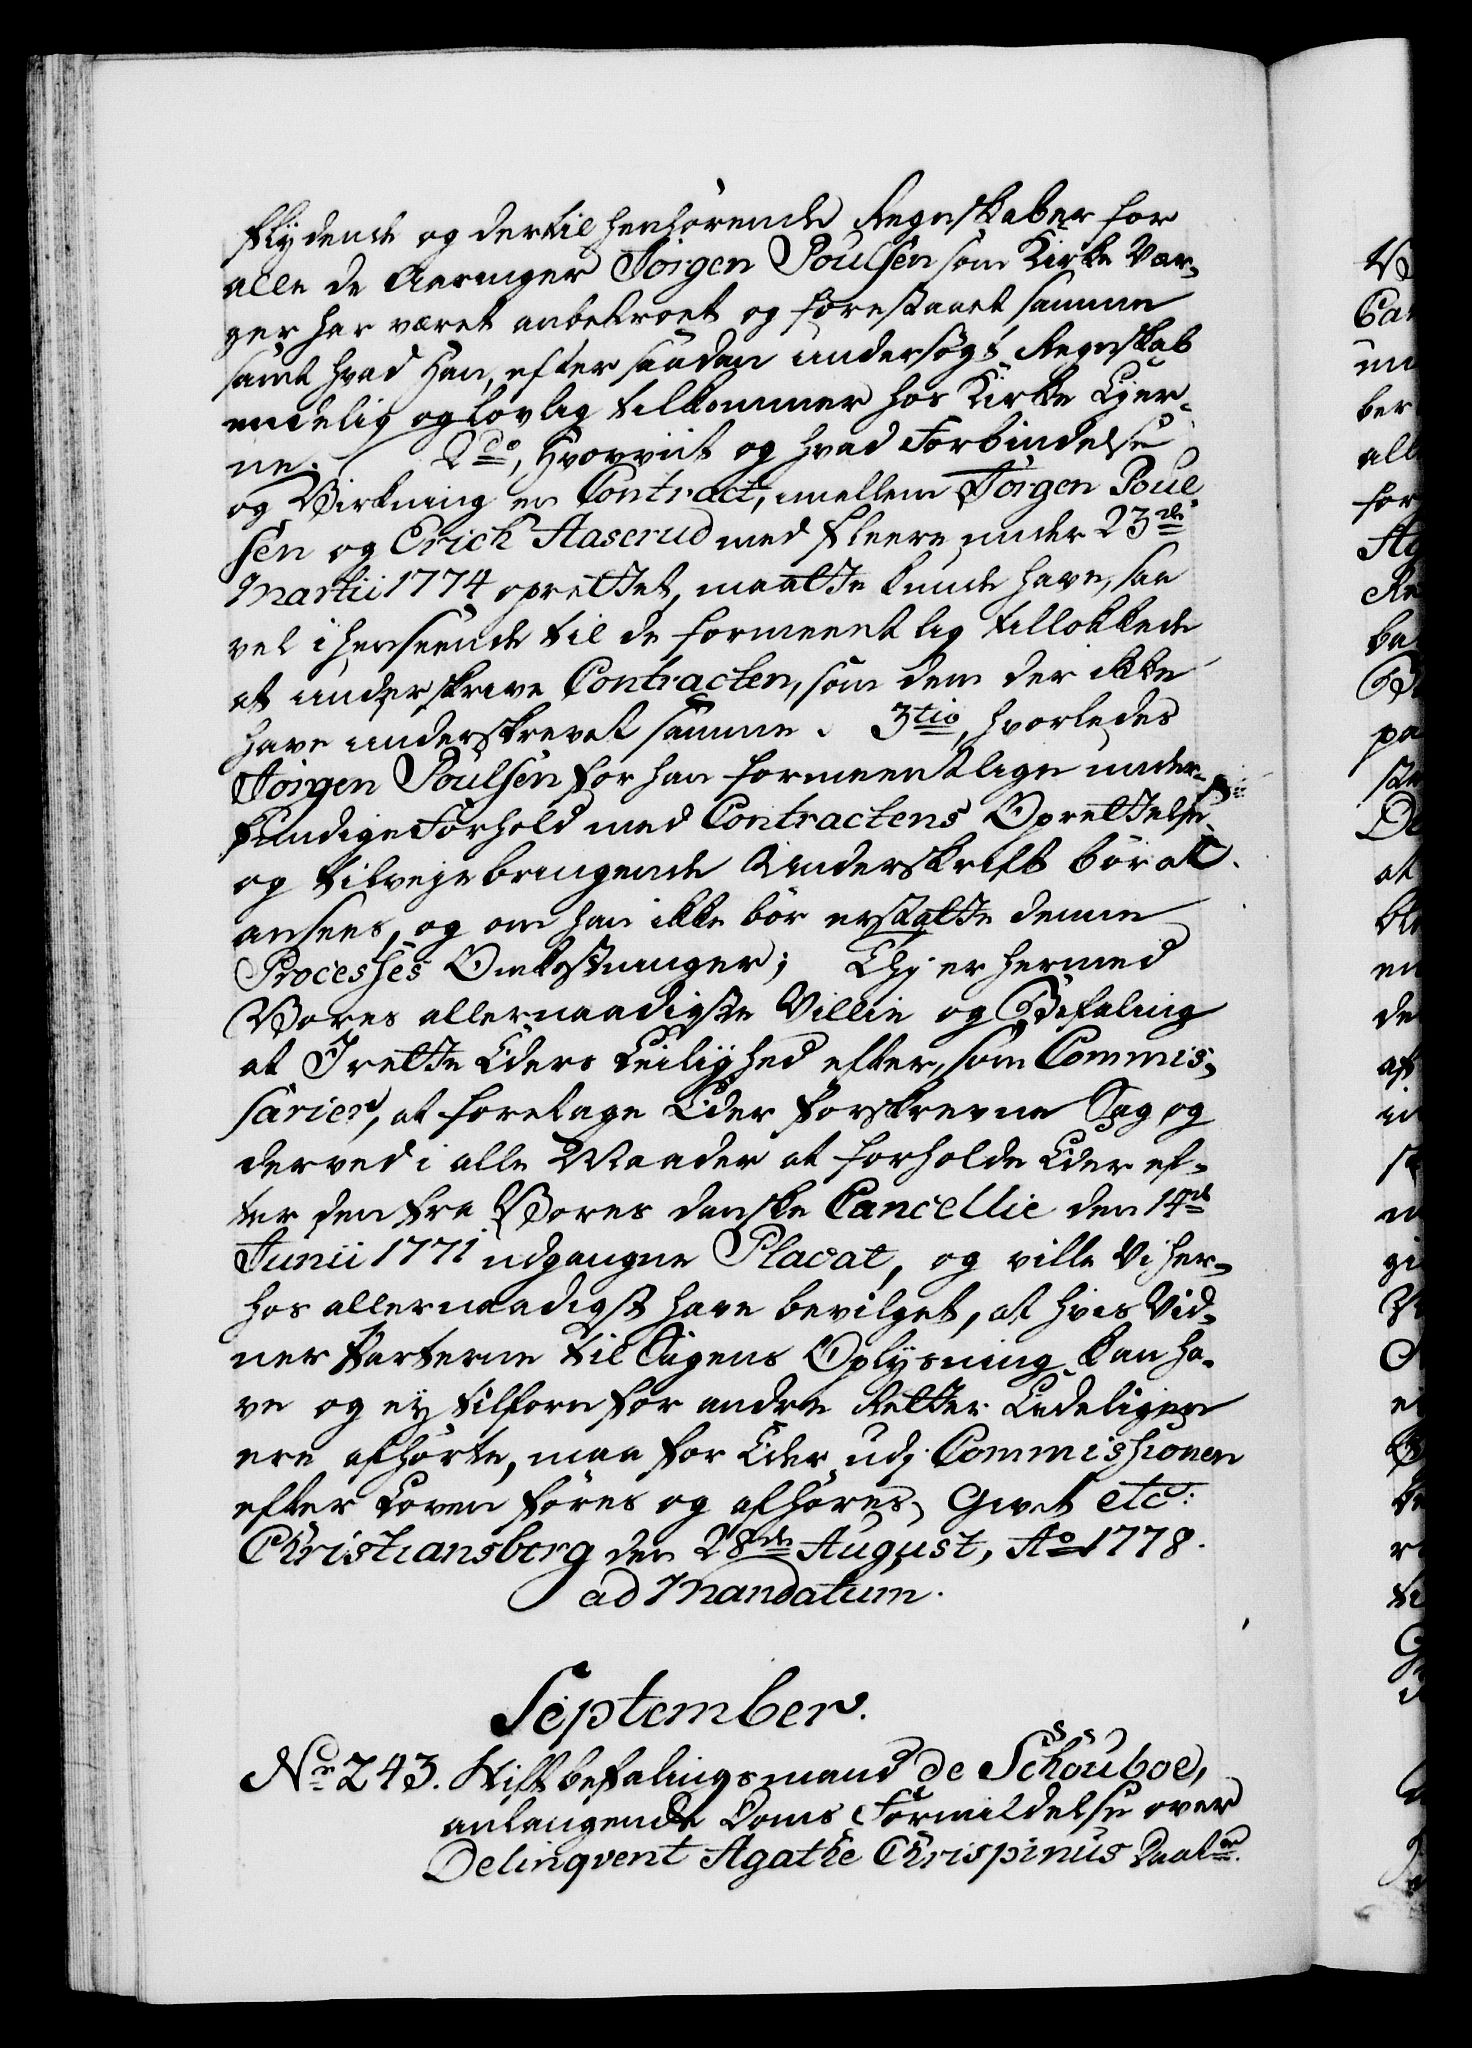 flydende og dertil henhörende Regnskaber for
alle de Aaringer Jörgen Poulsen som Kirke Vær-
ger har været anbetroet og forestaaet samme
samt hvad Han, efter saadan undersögt Regnskab
endelig og lovlig tilkommer hos Kirke Ejer-
ne. 2do, Hvorvidt og hvad Forbindelse
og Virkning en Contract, imellem Jörgen Poul
sen og Erich Aaserud med fleere under 23de
Martii 1774 oprettet, maatte kunde have, saa
vel i henseende til de formeentlig tillokkede
at underskrive Contracten, som dem der ikke
have underskrevet samme. 3tio, hvorledes
Jörgen Poulsen for han formeentlige under-
fundige Forhold med Contractens Oprettelse
og tilvejebringende Underskrift bör at
ansees, og om han ikke bör erstatte denne
Processes Omkostninger; Thj er hermed
Vores allernaadigste Villie og Befaling
at I rette Eders Leilighed efter, som Commis-
sarier, at foretage Eder forskrevne Sag og
derved i alle Maader at forholde Eder ef-
ter den fra Vores danske Cancellie den 14de
Junii 1771 udgangne Placat, og ville Vi her-
hos allernaadigst have bevilget, at hvis Vid-
ner Parterne til Sagens Oplysning kan ha-
ve og ej tilforn for andre Retter Eedeligen
ere afhörte, maa for Eder udj Commissionen
efter Loven föres og afhöres. Givet etc:
Christiansborg den 28de August, Ao 1778.
ad Mandatum.
September.
No 243. Stiftbefalingsmand de Schouboe,
anlangende Doms Formildelse over
Delinqvent Agathe Chrispinus Daatr.